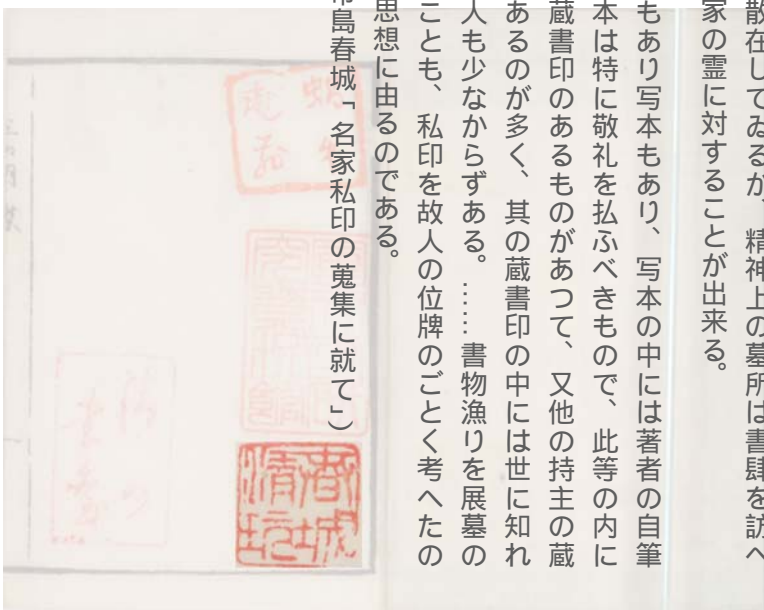 散在してゐるが、精神上の墓所は書肆を訪へ
家の霊に対することが出来る。
もあり写本もあり、写本の中には著者の自筆
本は特に敬礼を払ふべきもので、此等の内に
蔵書印のあるものがあつて、又他の持主の蔵
あるのが多く、其の蔵書印の中には世に知れ
人も少なからずある。……書物漁りを展墓の
ことも、私印を故人の位牌のごとく考へたの
思想に由るのである。
市島春城「名家私印の蒐集に就て」)
春城
清玩